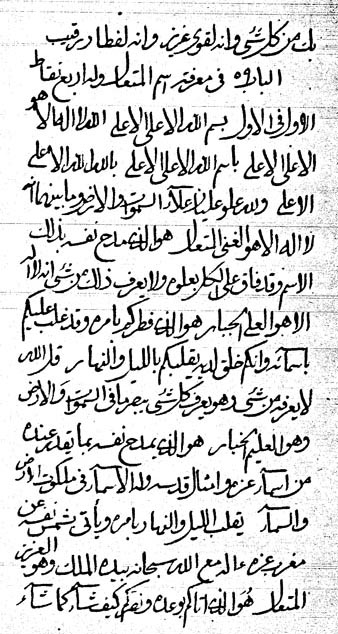 بك من كل شيء وانه لقوي عزيز وانه لفظا در قيب
الباب في معرفة اسم المتعال وله اربع نقاط
الاول في الاول بسم الله الاعلى الاعلى الله لا اله الا هو
الاعلى الاعلى باسم الله الاعلى الاعلى بالله الله الاعلى
الاعلى ولله علو عليان علاء السموات والارض وما بينهما انه
لا اله الا هو الغني المتعال هو الذي يمدح نفسه بذلك
الاسم وقد فاق على الكل بعلوه ولا يعرف ذلك من شيء انه لا اله
الا هو العلي الجبار هو الذي فطركم بامره وقد غلب عليكم
باسمائه وانكم خلق له يقلبكم بالليل والنهار قل الله
لا يعرفه من شيء وهو يعرف كل شيء بصر ما في السموات والارض
وهو العليم الخبار هو الذي يمدح نفسه بما يقدر عنده
من اسماء عزه وامثال قدسه وله الاسماء في ملكوت الارض
والسماء يقلب الليل والنهار بامره وياتي شمس نفسه عن
مغرب عزه ءاله مع الله سبحانه بيده الملك وهو العزيز
المتعال هو الذي اتاكم بوعده وقدركم كيف شاء كما شاء